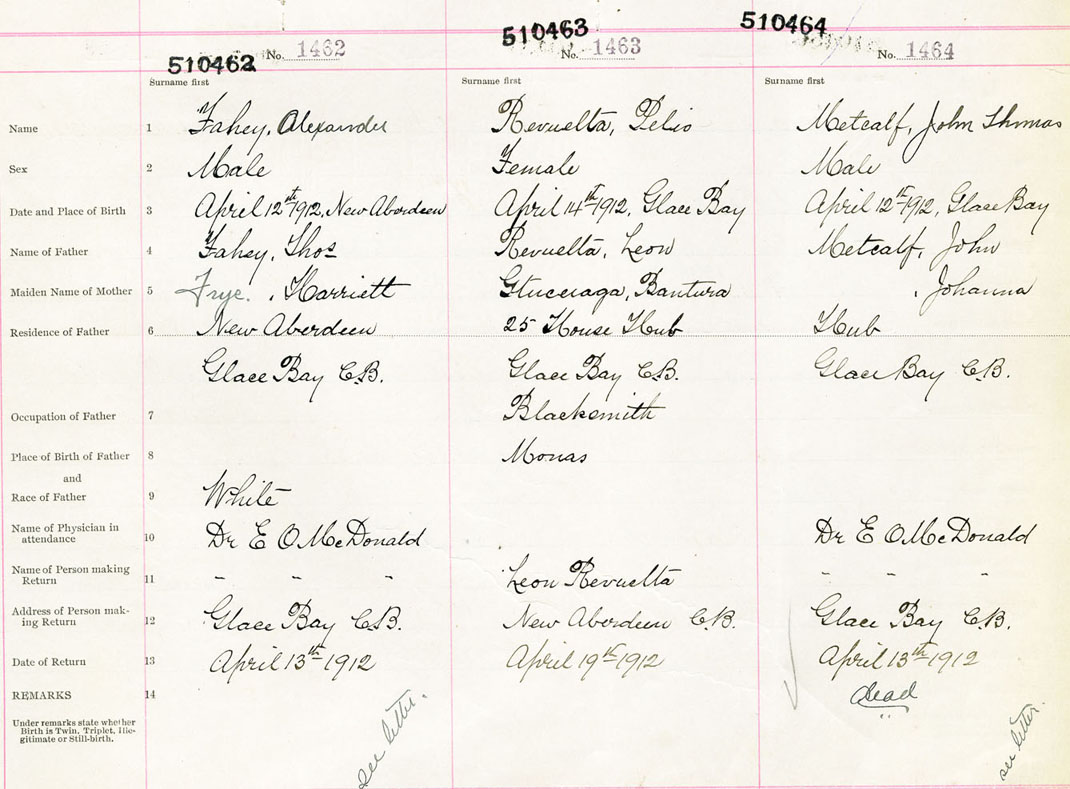 510462 510463 510464
No. 1462 No. 1463 No. 1464
Surname first Surname first Surname first
Name 1 Fahey, Alexander Revuelta, Pelio Metcalf, John Thomas
Sex 2 Male Female Male
Date and Place of Birth 3 April 12th 1912, New Aberdeen April 14th 1912, Glace Bay April 12th 1912, Glace Bay
Name of Father 4 Fahey, Thos Revuelta, Leon Metcalf, John
Maiden Name of Mother 5 Frye. , Harriett Bantura , Johanna
Residence of Father 6 New Aberdeen 25 House Hub Hub
Glace Bay C.B. Glace Bay C.B. Glace Bay C.B.
Occupation of Father 7 Blacksmith
Place of Birth of Father 8 Monas
and
Race of Father 9 White
Name of Physician in
attendance 10 Dr E O McDonald Dr E O McDonald
Name of Person making
Return 11 " " " Leon Revuelta " " "
Address of Person mak-
ing Return 12 Glace Bay C.B. New Aberdeen C.B. Glace Bay C.B.
Date of Return 13 April 13th 1912 April 19th 1912 April 13th 1912
REMARKS 14 dead
Under remarks state whether
Birth is Twin, Triplet, Ille-
gitimate or Still-birth.
see letter. see letter.